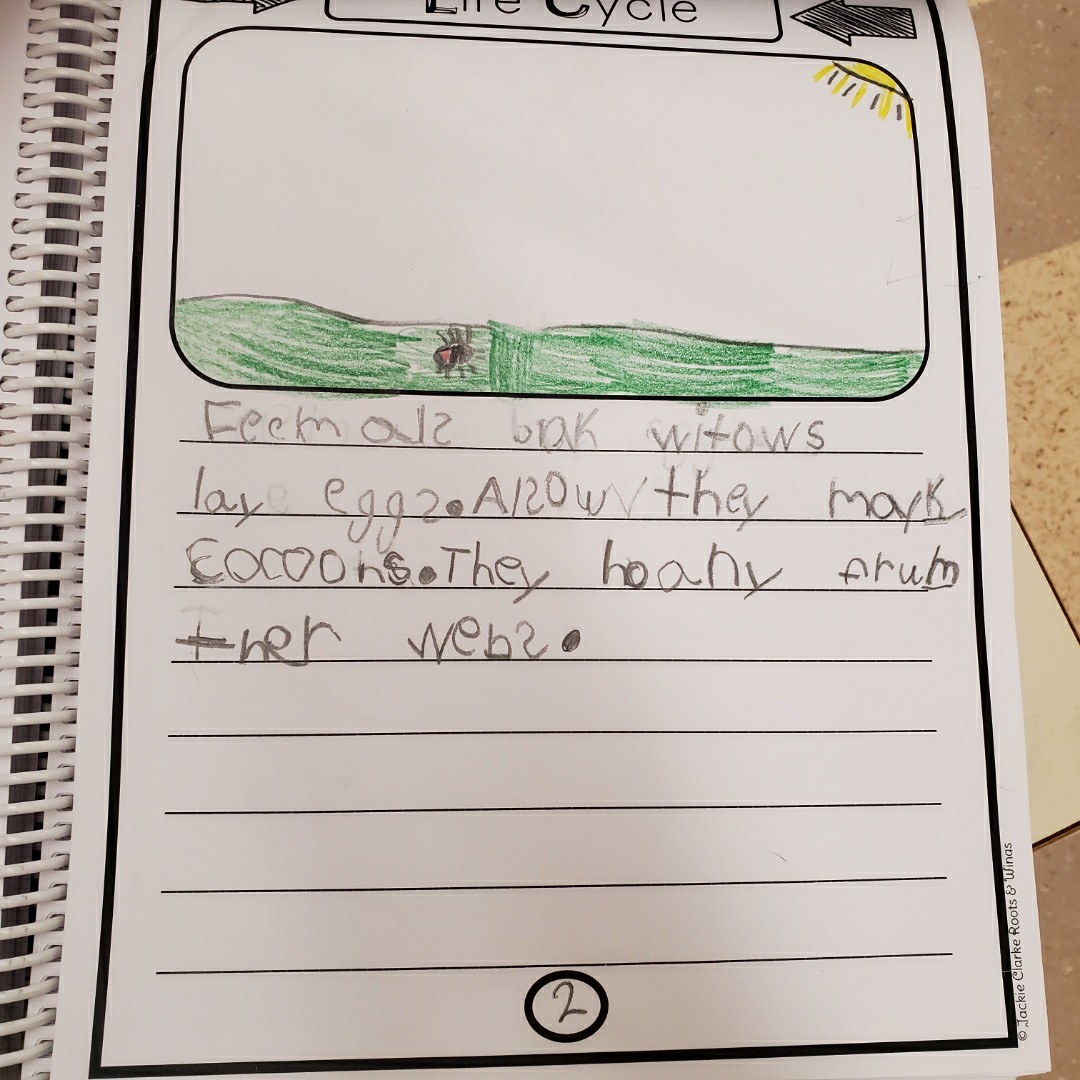 Life Cycle
Feemals bak witows
lay eggs. Alsow they mayk
Cocoons. They hoany frum
ther webs.
2
© Jackie Clarke Roots & Wings